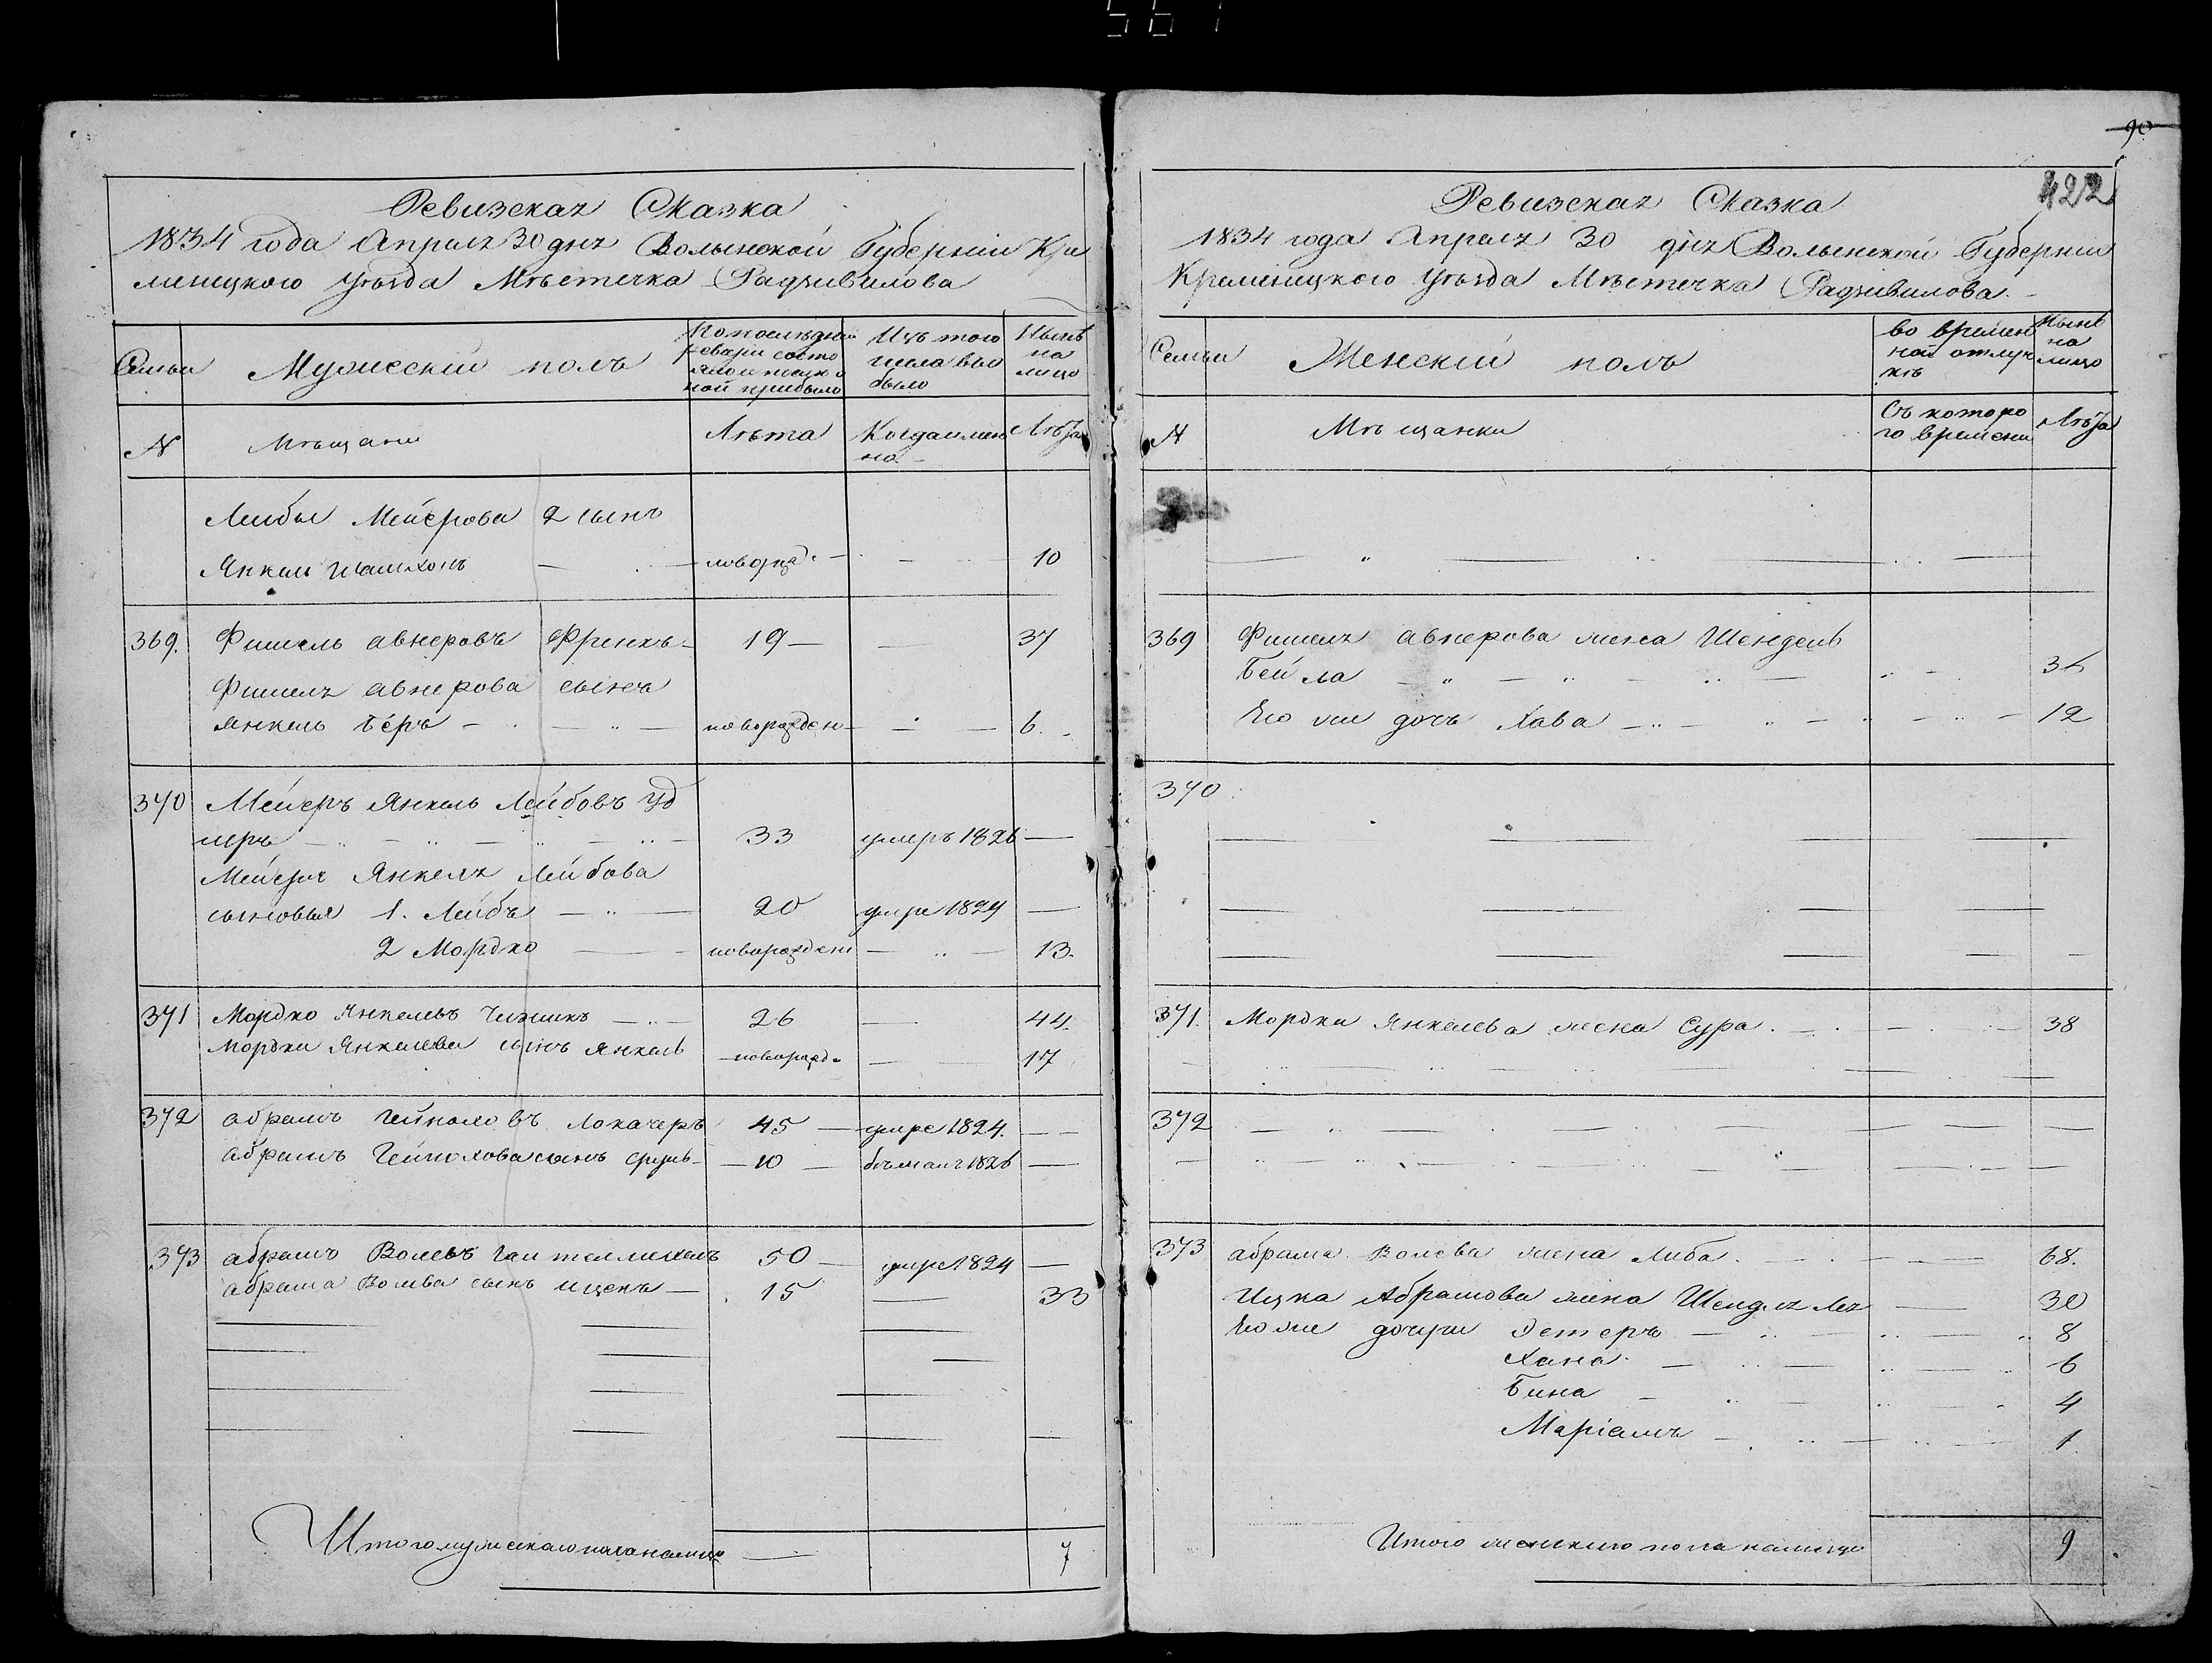 561
Ревизская Сказка
1834 года Апреля 30 дня Волынской Губерніи Кре
менецкого уѣзда Мѣстечка Радзивилова
Семьи
Мужескій полъ
По последней
ревизіи состо
яло и после о
ной прибыло
Изъ того
числа вы
было
Нынѣ
на
лицо
№
Мѣщане
Лѣта
Когда имен
но
Лѣта
Лейбы Мейерова 2 сынъ
Янкель новорожд. 10
369. Фишель авнеровъ Френкъ 19 — — 37
Фишеля авнерова сынъ
Янкель Беръ — новорожден — — 6.
370 Мейеръ Янкель Лейбовъ Уд
неръ 33 умеръ 1826 —
Мейера Янкеля Лейбова
сыновья 1. Лейба — 20 умре 1829 —
2 Мордко — новорожден — 13.
371 Мордко Янкелевъ Чижикъ — 26 — 44.
Мордки Янкелева сынъ Янкель новорожд. — 17
372 абрамъ Гейноховъ Локачеръ 45 — умре 1824. —
абрама Гейнохова сынъ — 10 — 1826 —
373 абрамъ Волевъ 50 — умре 1824 —
абрама Волева сынъ Ицекъ — 15 — 33
Итого мужескаго пола налицо — 7
90
422
Ревизская Сказка
1834 года Апреля 30 дня Волынской Губерніи
Кременецкого уѣзда Мѣстечка Радзивилова.
Семьи
Женскій полъ
во времен
ной отлуч
кѣ
Нынѣ
на
лицо
№
Мѣщанки
Съ которо
го времени
Лѣта
369 Фишеля авнерова жена Шендель
Бейла 36
Его же дочь Хава — 12
370
371. Мордки Янкелева жена Сура. — 38
372
373 абрама Волева жена Либа. — 68.
Ицка Абрамова жена — 30
Его же дочери Эстеръ — 8
Хана. — 6
Бина — 4
Маріамъ — 1.
Итого женскаго пола налицо 9